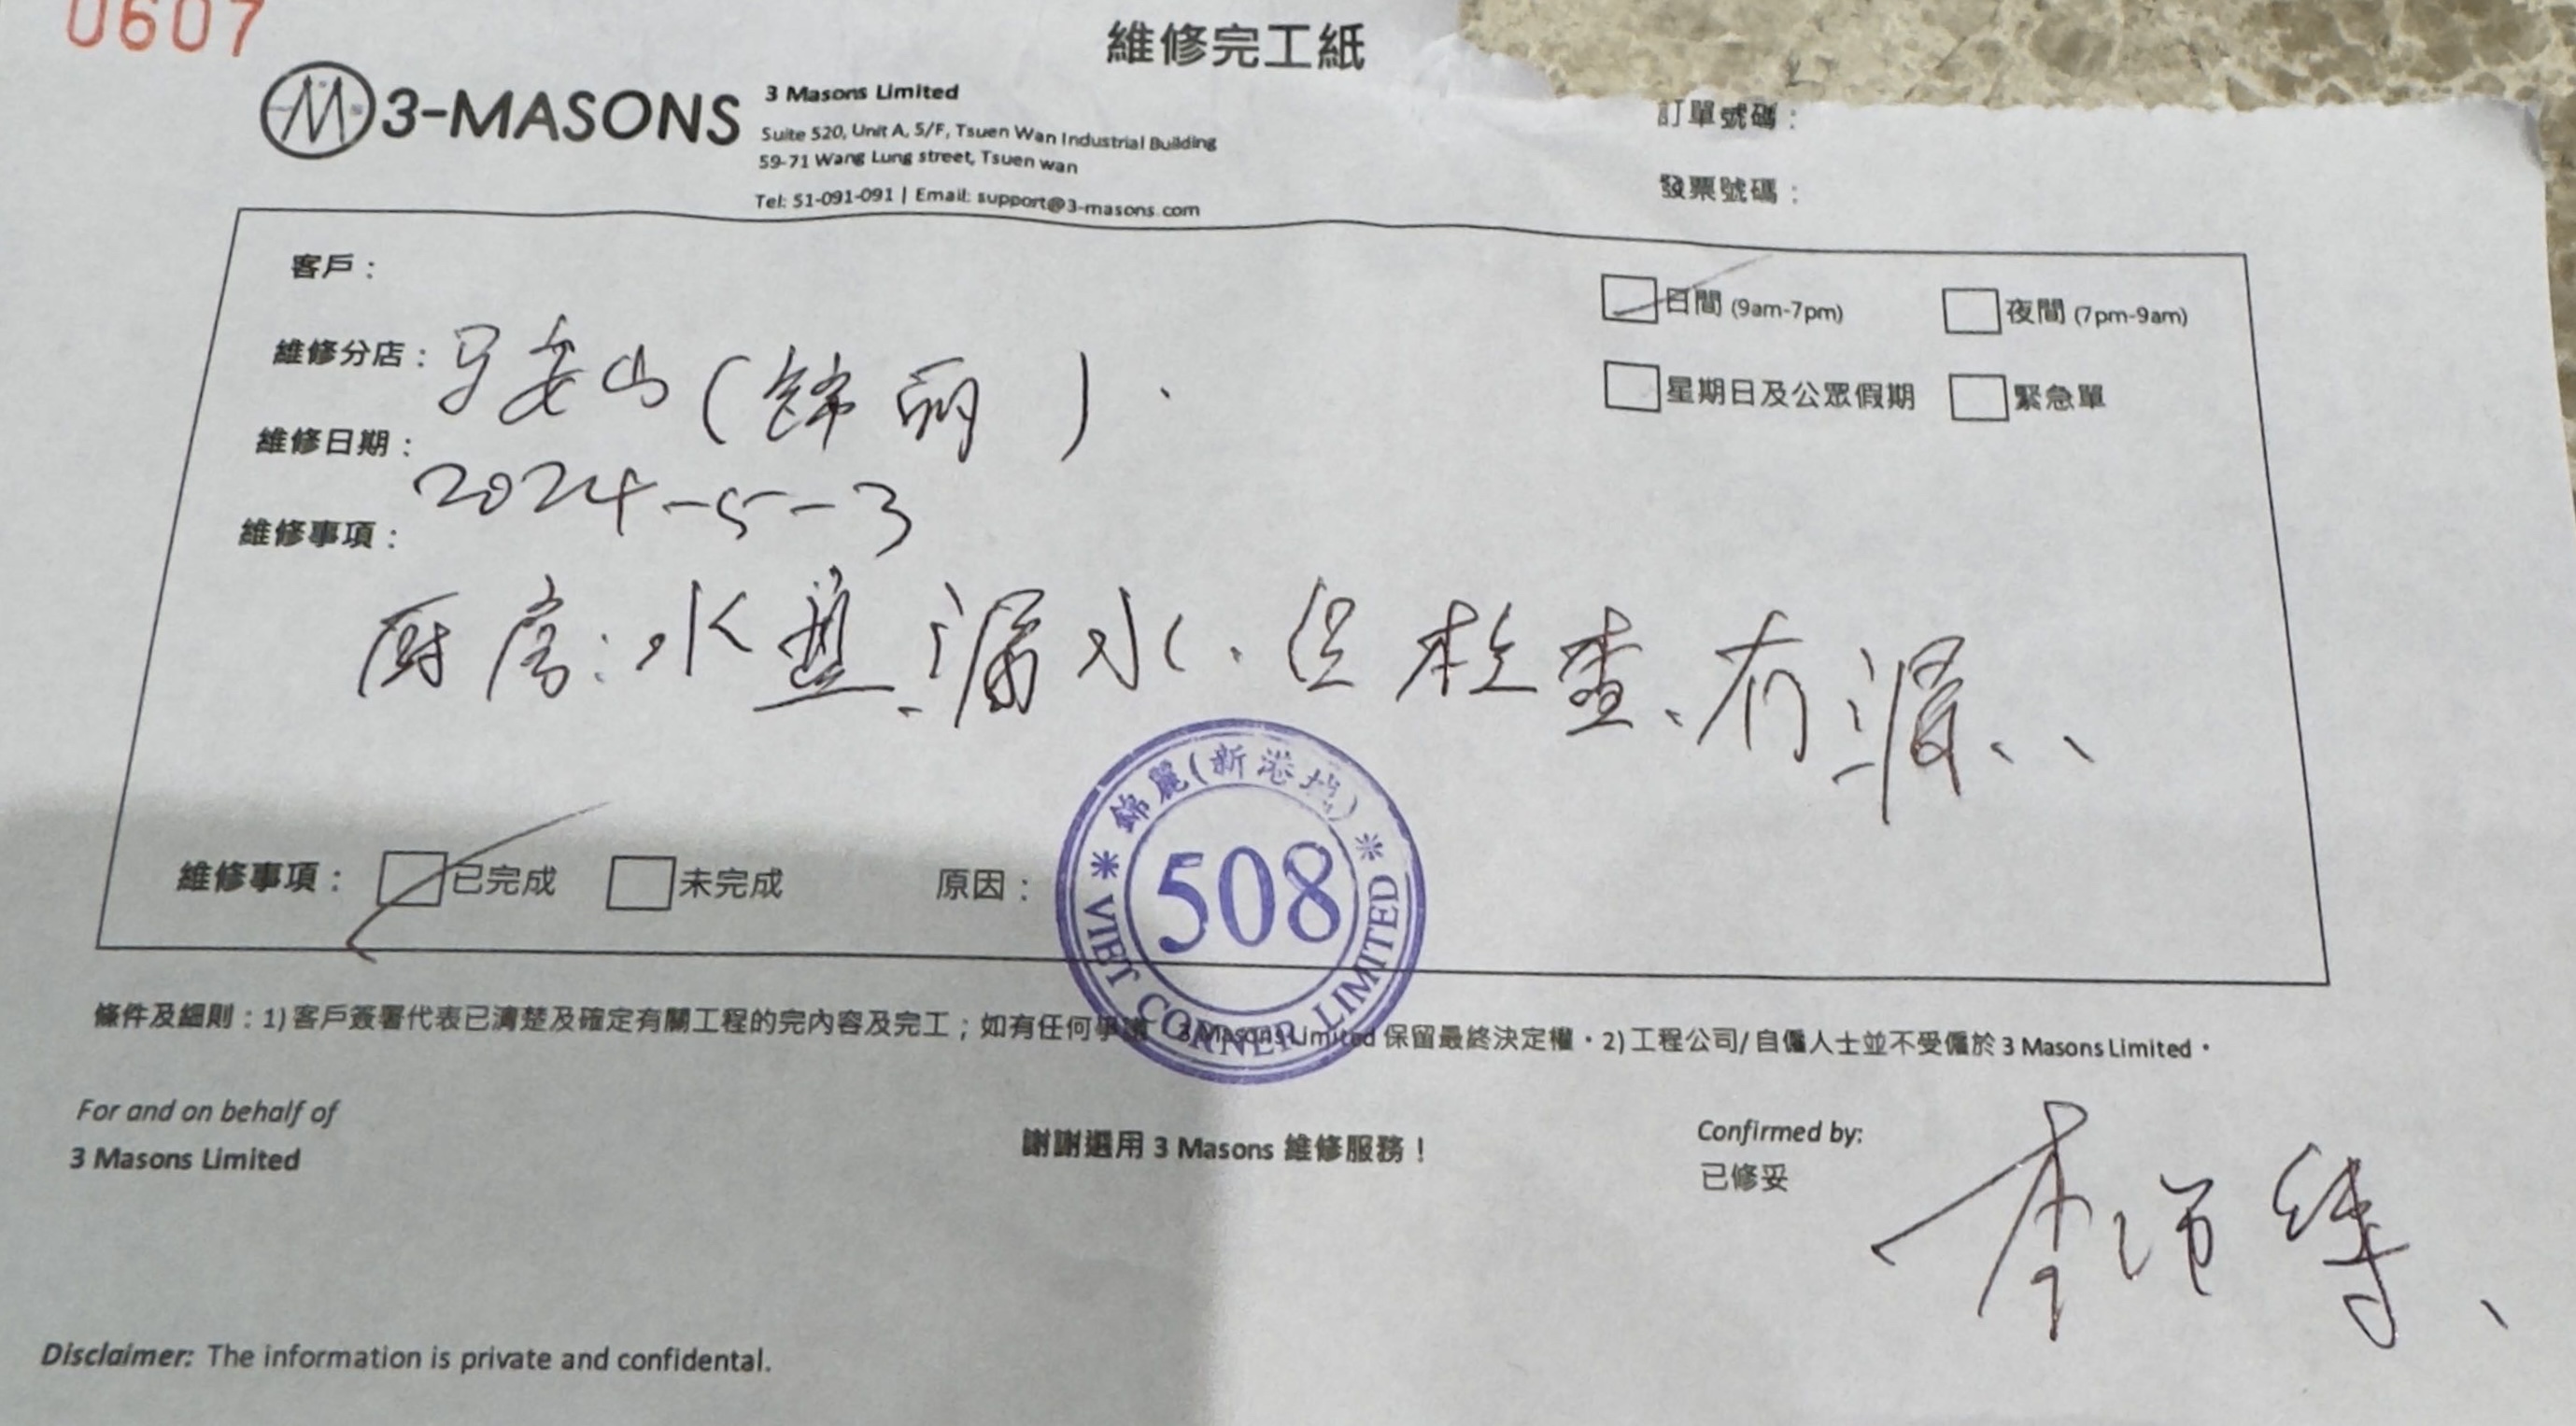 0607
維修完工紙
3-MASONS
3 Masons Limited
Suite 520, Unit A, 5/F, Tsuen Wan Industrial Building
59-71 Wang Lung street, Tsuen wan
Tel: 51-091-091 | Email: support@3-masons.com
訂單號碼：
發票號碼：
客戶：
日間 (9am-7pm) 夜間 (7pm-9am)
維修分店：马安山(锦丽).
星期日及公眾假期 緊急單
維修日期：2024-5-3
維修事項：
厨房:水盤漏水.但检查、有漏、、
維修事項： 已完成 未完成 原因：
錦麗(新港城)
508
VIET CORNER LIMITED
條件及細則：1) 客戶簽署代表已清楚及確定有關工程的完內容及完工；如有任何爭議 3 Masons Limited 保留最終決定權。2) 工程公司/ 自僱人士並不受僱於 3 Masons Limited。
For and on behalf of
3 Masons Limited
謝謝選用 3 Masons 維修服務！
Confirmed by:
已修妥
李
Disclaimer: The information is private and confidental.